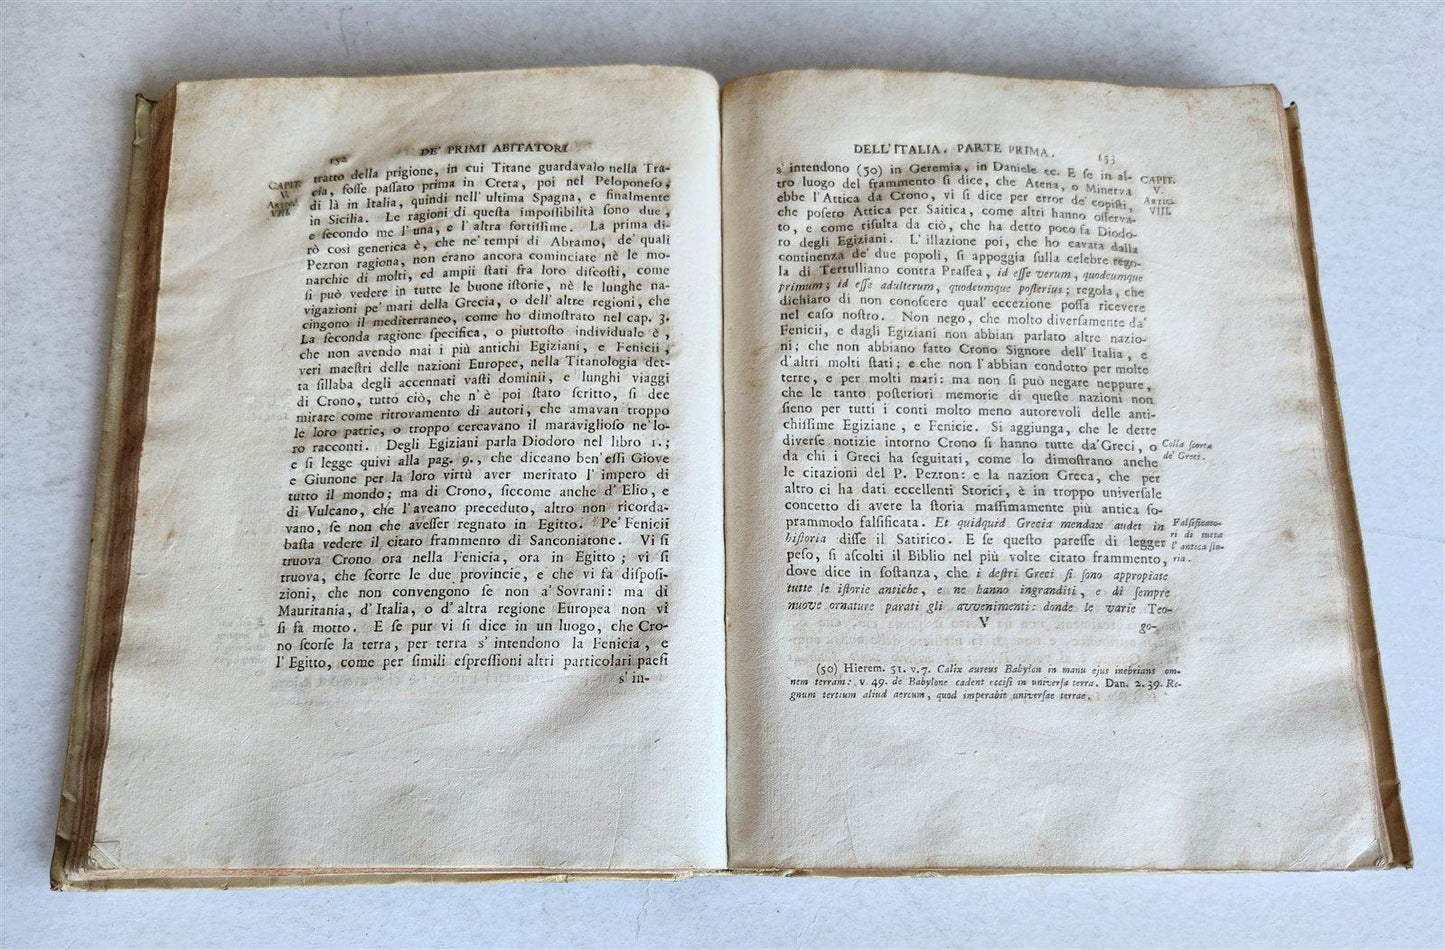 152 DE' PRIMI ABITATORI
CAPIT.
V.
ARTIC.
VIII.
tratto della prigione, in cui Titane guardavalo nella Tra-
cia, foſſe paſſato prima in Creta, poi nel Peloponeſo,
di là in Italia, quindi nell' ultima Spagna, e finalmente
in Sicilia. Le ragioni di queſta impoſſibilità ſono due,
e ſecondo me l' una, e l' altra fortiſſime. La prima di-
rò così generica è, che ne' tempi di Abramo, de' quali
Pezron ragiona, non erano ancora cominciate nè le mo-
narchie di molti, ed ampii ſtati fra loro diſcoſti, come
ſi può vedere in tutte le buone iſtorie, nè le lunghe na-
vigazioni pe' mari della Grecia, o dell' altre regioni, che
cingono il mediterraneo, come ho dimoſtrato nel cap. 3.
La ſeconda ragione ſpecifica, o piuttoſto individuale è,
che non avendo mai i più antichi Egiziani, e Fenicii,
veri maeſtri delle nazioni Europee, nella Titanologia det-
ta ſillaba degli accennati vaſti dominii, e lunghi viaggi
di Crono, tutto ciò, che n' è poi ſtato ſcritto, ſi dee
mirare come ritrovamento di autori, che amavan troppo
le loro patrie, o troppo cercavano il maraviglioso ne' lo-
ro racconti. Degli Egiziani parla Diodoro nel libro 1.;
e ſi legge quivi alla pag. 9., che diceano ben' eſſi Giove
e Giunone per la loro virtù aver meritato l' impero di
tutto il mondo; ma di Crono, ſiccome anche d' Elio, e
di Vulcano, che l' aveano preceduto, altro non ricorda-
vano, ſe non che aveſſer regnato in Egitto. Pe' Fenicii
baſta vedere il citato frammento di Sanconiatone. Vi ſi
truova Crono ora nella Fenicia, ora in Egitto; vi ſi
truova, che ſcorre le due provincie, e che vi fa diſpoſi-
zioni, che non convengono ſe non a' Sovrani: ma di
Mauritania, d' Italia, o d' altra regione Europea non vi
ſi fa motto. E ſe pur vi ſi dice in un luogo, che Cro-
no ſcorſe la terra, per terra s' intendono la Fenicia, e
l' Egitto, come per ſimili eſpreſſioni altri particolari paeſi
s' in-
DELL' ITALIA. PARTE PRIMA. 153
s' intendono (50) in Geremia, in Daniele ec. E ſe in al-
tro luogo del frammento ſi dice, che Atena, o Minerva
ebbe l' Attica da Crono, vi ſi dice per error de' copiſti,
che poſero Attica per Saitica, come altri hanno oſſerva-
to, e come riſulta da ciò, che ha detto poco fa Diodo-
ro degli Egiziani. L' illazione poi, che ho cavata dalla
continenza de' due popoli, ſi appoggia ſulla celebre rego-
la di Tertulliano contra Praſſea, id eſſe verum, quodcumque
primum; id eſſe adulterum, quodcumque poſterius; regola, che
dichiaro di non conoſcere qual' eccezione poſſa ricevere
nel caſo noſtro. Non nego, che molto diverſamente da'
Fenicii, e dagli Egiziani non abbian parlato altre nazio-
ni; che non abbiano fatto Crono Signore dell' Italia, e
d' altri molti ſtati; e che non l' abbian condotto per molte
terre, e per molti mari: ma non ſi può negare neppure,
che le tanto poſteriori memorie di queſte nazioni non
ſieno per tutti i conti molto meno autorevoli delle anti-
chiſſime Egiziane, e Fenicie. Si aggiunga, che le dette
diverſe notizie intorno Crono ſi hanno tutte da' Greci, o
da chi i Greci ha ſeguitati, come lo dimoſtrano anche
le citazioni del P. Pezron: e la nazion Greca, che per
altro ci ha dati eccellenti Storici, è in troppo univerſale
concetto di avere la ſtoria maſſimamente più antica ſo-
prammodo falſificata. Et quidquid Grecia mendax audet in
hiſtoria diſſe il Satirico. E ſe queſto pareſſe di legger
peſo, ſi aſcolti il Biblio nel più volte citato frammento,
dove dice in ſoſtanza, che i deſtri Greci ſi ſono appropiate
tutte le iſtorie antiche, e ne hanno ingranditi, e di ſempre
nuove ornature parati gli avvenimenti: donde le varie Teo-
V go-
CAPIT.
V.
ARTIC.
VIII.
Colla ſcorta
de' Greci.
Falſificato-
ri di tutta
l' antica ſto-
ria.
(50) Hierem. 51. v. 7. Calix aureus Babylon in manu ejus inebrians om-
nem terram: v 49. de Babylone cadent occiſi in univerſa terra. Dan. 2. 39. Re-
gnum tertium aliud aereum, quod imperabit univerſae terrae.